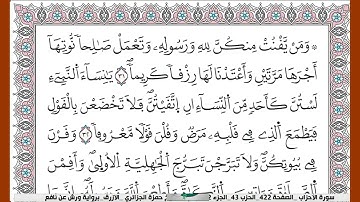 ۞ وَمَنْ يَّقْنُتْ مِنكُنَّ لِلهِ وَرَسُولِهِۦ وَتَعْمَلْ صَٰلِحاً نُّوتِهَآ
أَجْرَهَا مَرَّتَيْنِ وَأَعْتَدْنَا لَهَا رِزْقاً كَرِيماً ۝٣١ يَٰنِسَآءَ اَ۬لنَّبِےٓءِ
لَسْتُنَّ كَأَحَدٖ مِّنَ اَ۬لنِّسَآءِ انِ اِتَّقَيْتُنَّ فَلَا تَخْضَعْنَ بِالْقَوْلِ
فَيَطْمَعَ اَ۬لذِے فِے قَلْبِهِۦ مَرَضٞ وَقُلْنَ قَوْلاً مَّعْرُوفاً ۝٣٢ وَقَرْنَ
فِے بُيُوتِكُنَّ وَلَا تَبَرَّجْنَ تَبَرُّجَ اَ۬لْجَٰهِلِيَّةِ اِ۬لُاولَيٰ وَأَقِمْنَ
سورة الأحزاب _ الصفحة 422_ الحزب 43_ الجزء 2 حمزة الجزائري _ الأزرق_ برواية ورش عن نافع